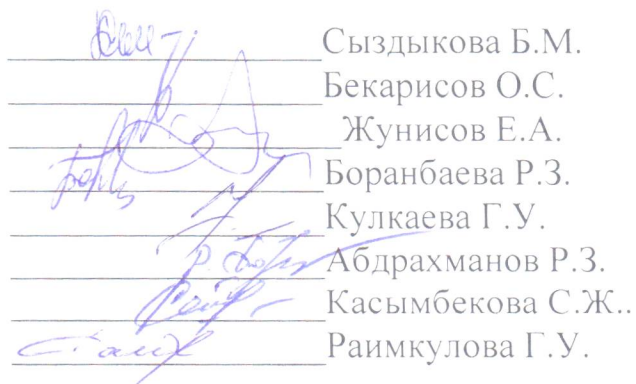 Сыздыкова Б.М.
Бекарисов О.С.
Жунисов Е.А.
Боранбаева Р.З.
Кулкаева Г.У.
Абдрахманов Р.З.
Касымбекова С.Ж..
Раимкулова Г.У.